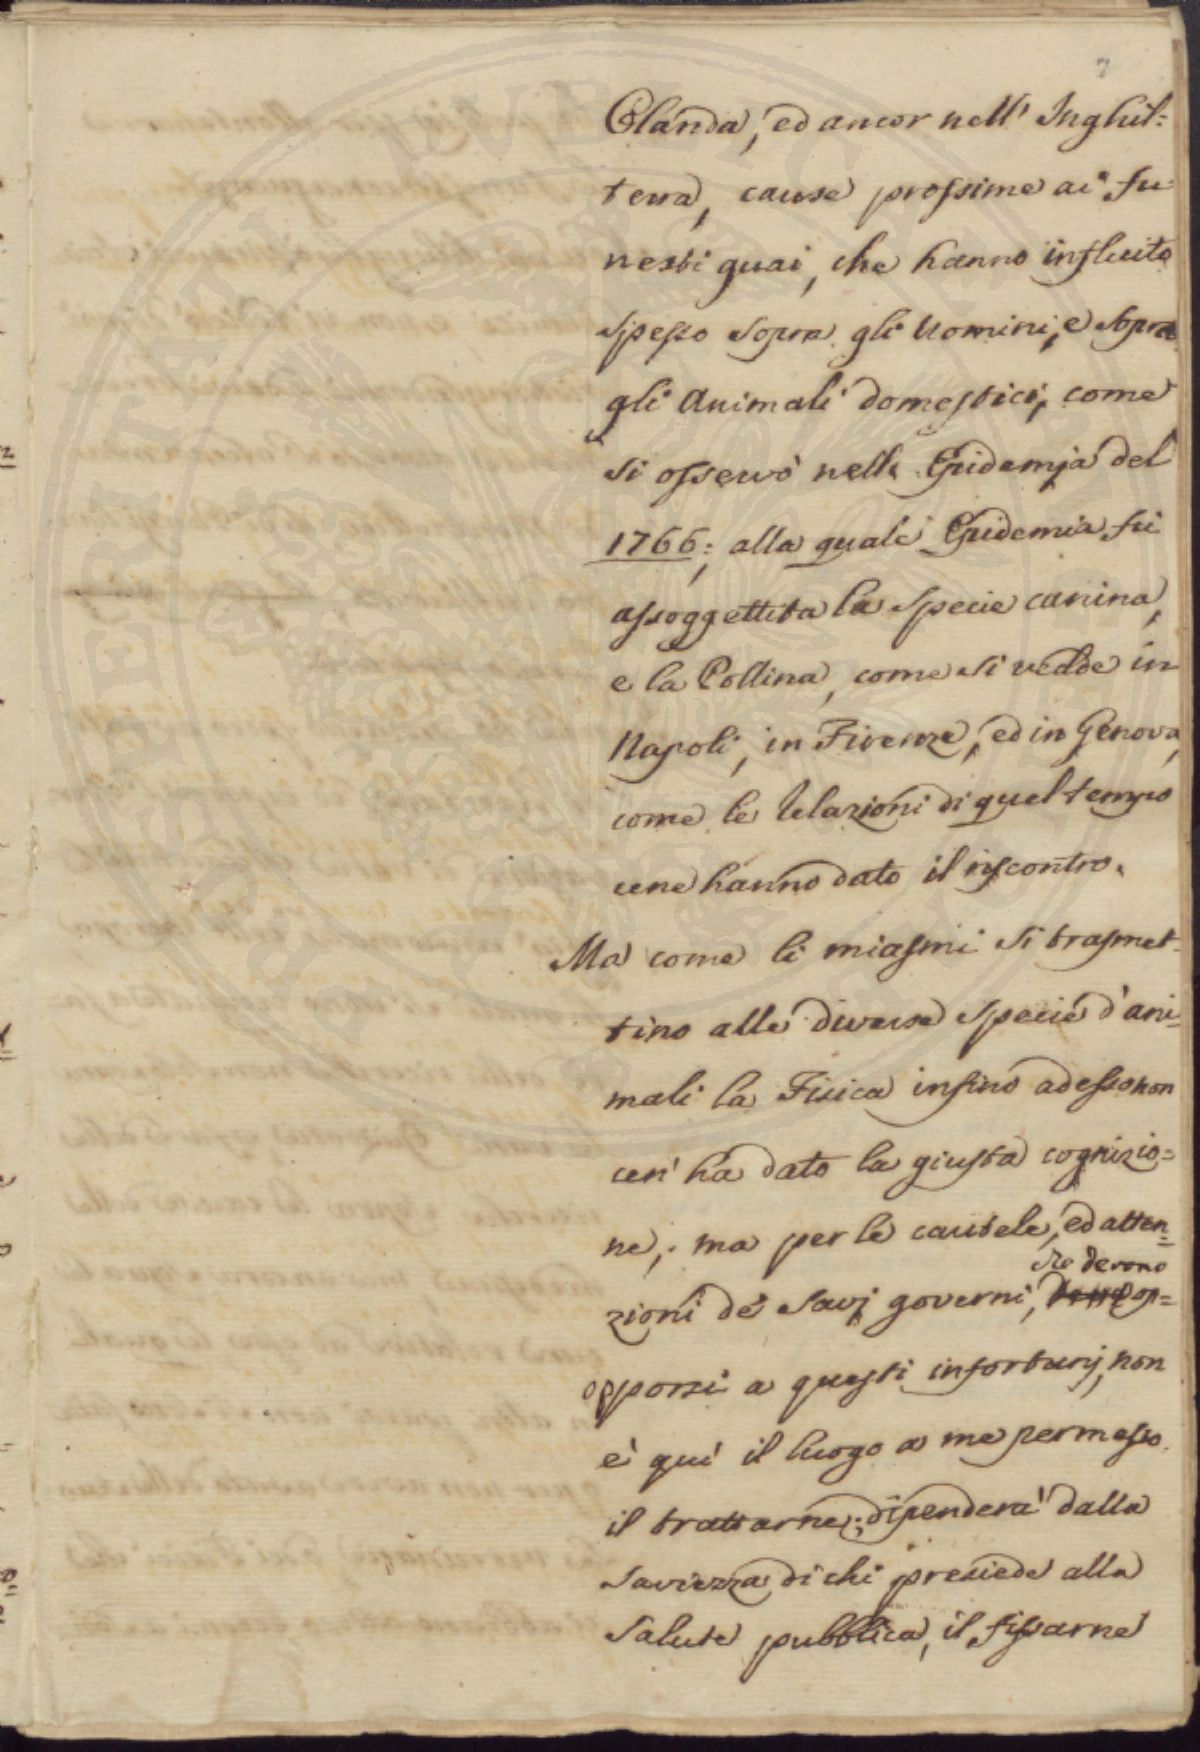 7
Olanda, ed ancor nell' Inghil=
terra, cause prossime ai fu=
nesti guai, che hanno influito
spesso sopra gli Uomini, e sopra
gli Animali domestici, come
si osservò nella Epidemja del
1766; alla quale Epidemia fù
assoggettita la specie canina,
e la Pollina, come si vedde in
Napoli, in Firenze, ed in Genova,
come le Relazioni di quel tempo
cene hanno dato il riscontro.
Ma come li miasmi si trasmet=
tino alle diverse specie d'ani=
mali la Fisica insino adesso non
cen' ha dato la giusta cognizio=
ne; ma per le cautele, ed atten=
che devono
zioni de' Savj governi, op=
opporsi a questi infortunj, non
è quì il luogo a me permesso
il trattarne; dipenderà dalla
saviezza di chi presiede alla
salute pubblica, il fissarne